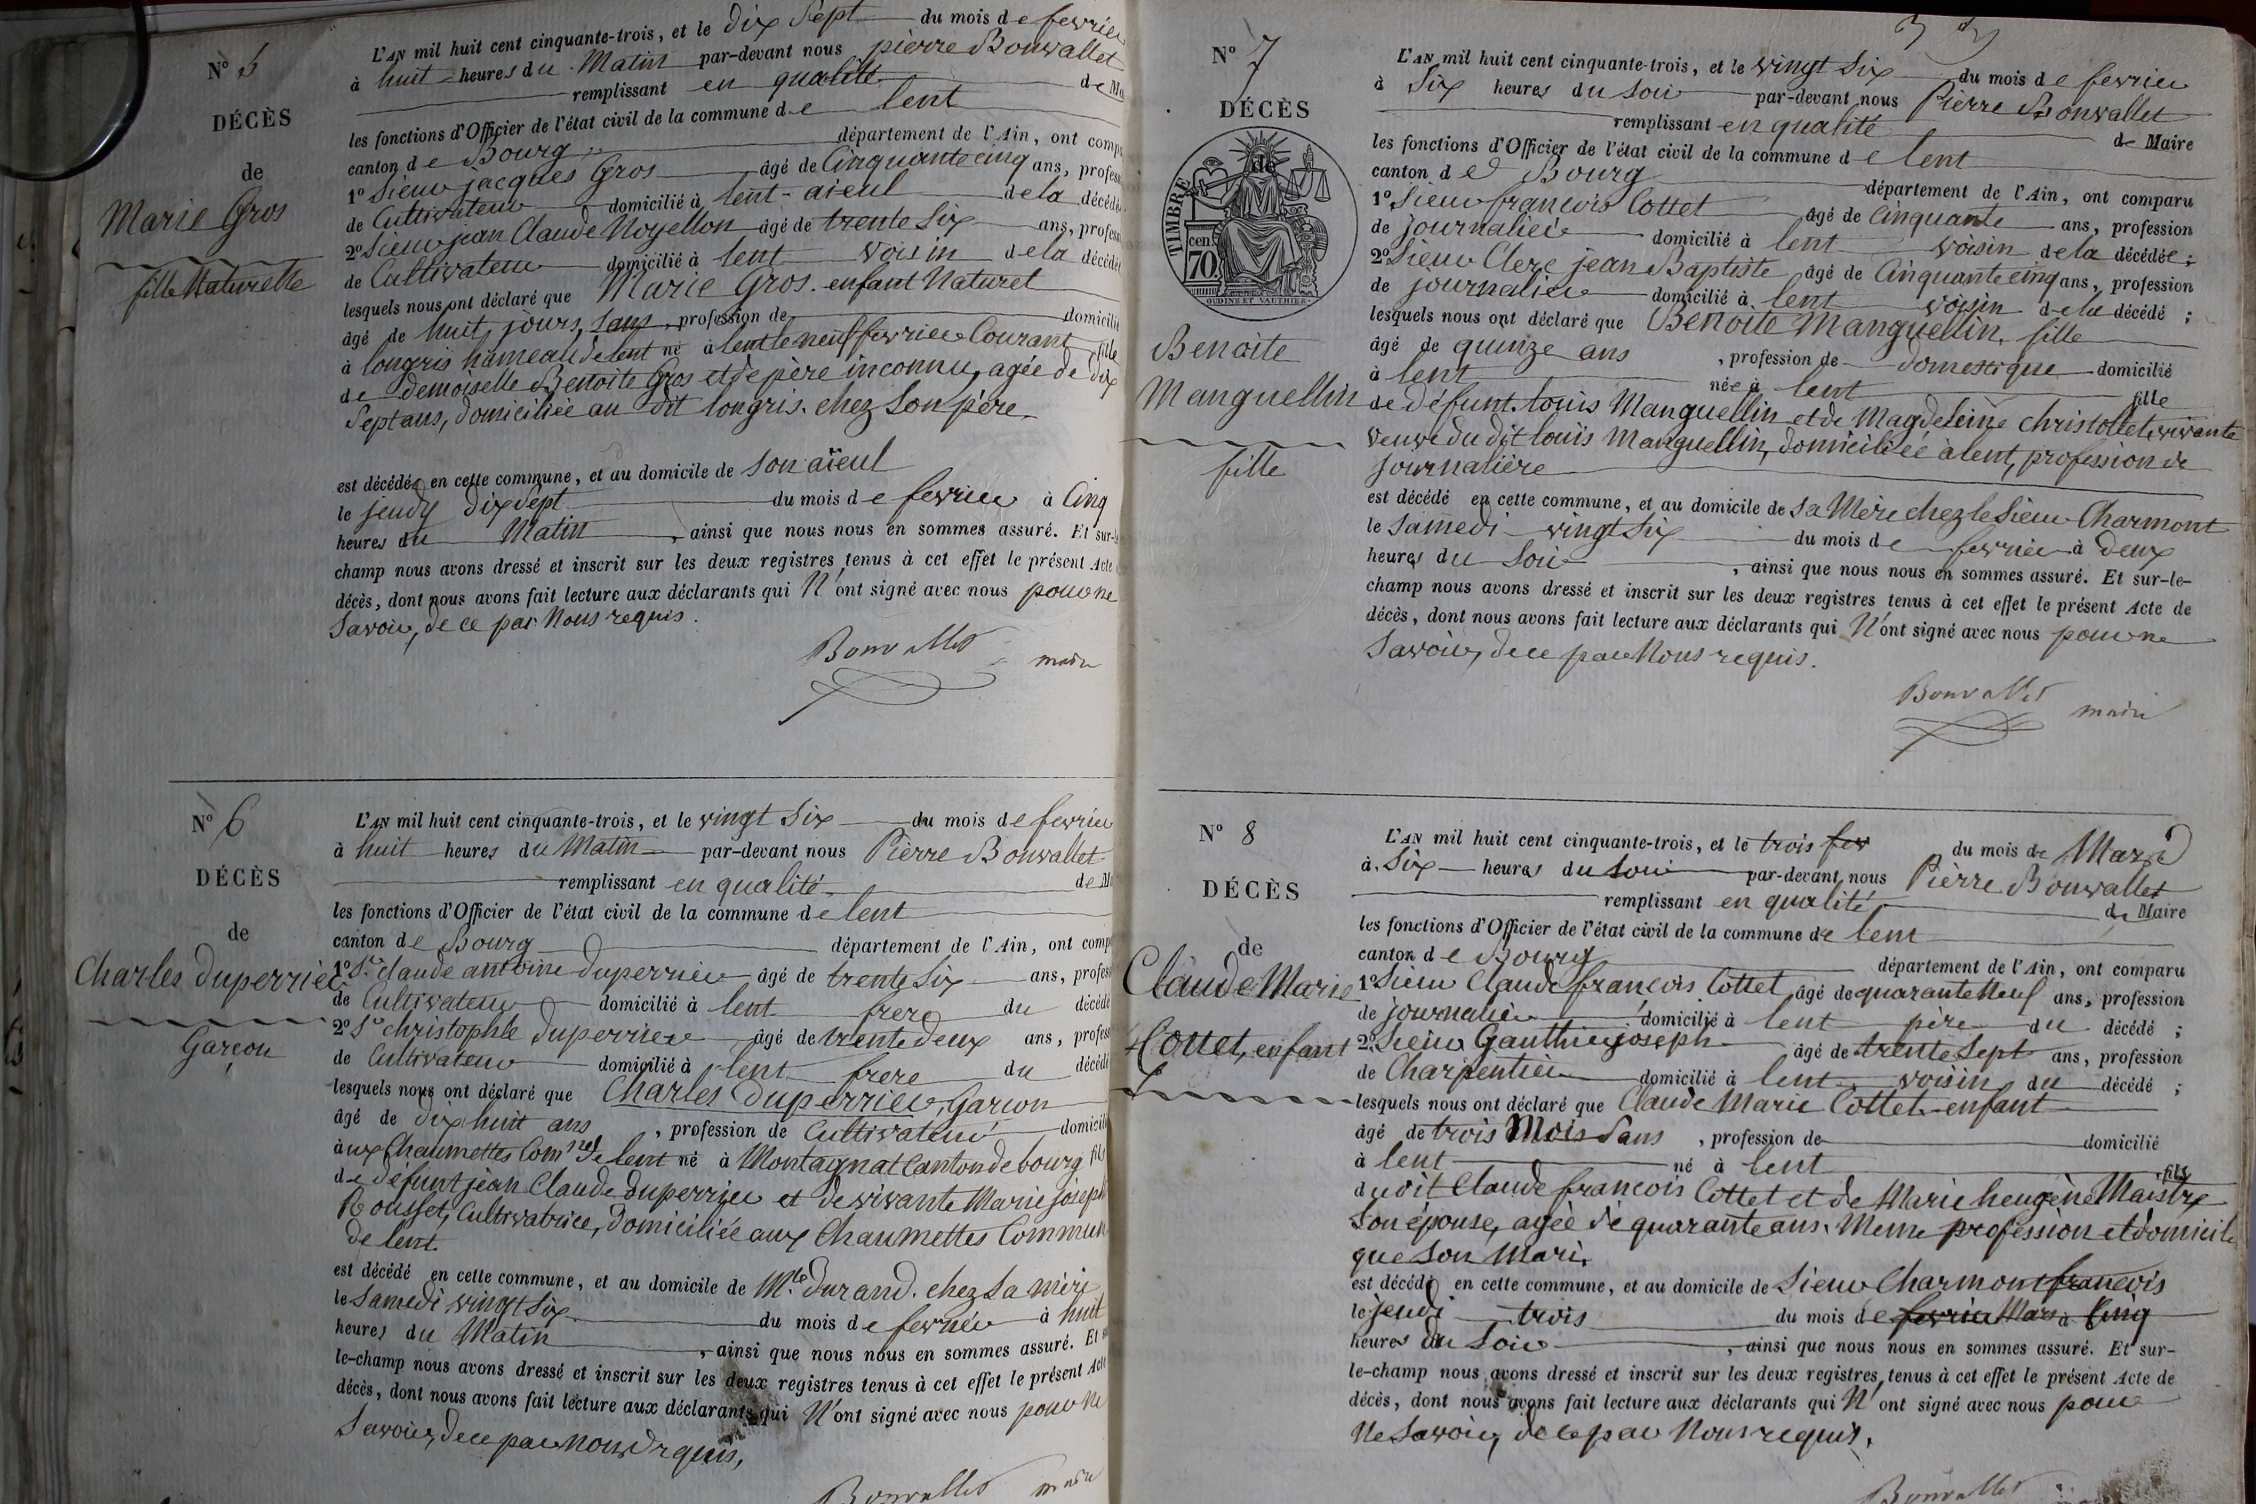 Nº 5
DÉCÈS
de
Marie Gros
fille Naturelle
L'AN mil huit cent cinquante-trois, et le dix Sept du mois de fevrier
à huit heures du Matin par-devant nous pierre Bonvallet
remplissant en qualité de
les fonctions d'Officier de l'état civil de la commune de lent
canton de Bourg département de l'Ain, ont
1º Sieur jacques Gros âgé de Cinquante cinq ans,
de Cultivateur domicilié à lent - aïeul de la
2º Sieur jean Claude Noyellon âgé de trente Six ans,
de Cultivateur domicilié à lent voisin de la
lesquels nous ont déclaré que Marie Gros. enfant Naturel
âgé de huit jours, Sans profession de
à longris hameau de lent né à lent le neuf fevrier Courant fille
de demoiselle Benoite Gros et de père inconnu, agée de dix
Sept ans, domiciliée au dit longris. chez Son père.
est décédée en cette commune, et au domicile de Son aïeul
le jeudy dix Sept du mois de fevrier à Cinq
heures du Matin, ainsi que nous nous en sommes assuré. Et sur-le-
champ nous avons dressé et inscrit sur les deux registres tenus à cet effet le présent Acte
décès, dont nous avons fait lecture aux déclarants qui N'ont signé avec nous pour ne
Savoir, de ce par Nous requis.
Bonvallet maire
Nº 6
DÉCÈS
de
Charles duperrier
Garçon
L'AN mil huit cent cinquante-trois, et le vingt Six du mois de fevrier
à huit heures du Matin par-devant nous Pierre Bonvallet
remplissant en qualité de
les fonctions d'Officier de l'état civil de la commune de lent
canton de Bourg département de l'Ain, ont
1º Sr. Claude antoine duperrier âgé de trente Six ans,
de Cultivateur domicilié à lent frere du
2º Sr christophle duperrier âgé de trente deux ans,
de Cultivateur domicilié à lent frere du
lesquels nous ont déclaré que Charles Duperrier, Garçon
âgé de dix huit ans, profession de Cultivateur
aux Chaumettes Comne de lent né à Montagnat Canton de bourg fils
de défunt jean Claude duperrier et de vivante Marie joseph
Rousset, Cultivatrice, domiciliée aux Chaumettes
de lent
est décédé en cette commune, et au domicile de Mr. durand. chez Sa mère
le Samedi vingt Six du mois de fevrier à huit
heures du Matin, ainsi que nous nous en sommes assuré. Et
le-champ nous avons dressé et inscrit sur les deux registres tenus à cet effet le présent Acte
décès, dont nous avons fait lecture aux déclarants qui N'ont signé avec nous pour Ne
Savoir, de ce par Nous requis,
Bonvallet maire
Nº 7
DÉCÈS
de
TIMBRE
cen.
70
OUDINÉ ET VAUTHIER
Benoite
Manguellin
fille
L'AN mil huit cent cinquante-trois, et le vingt Six du mois de fevrier
à Six heures du Soir par-devant nous Pierre Bonvallet
remplissant en qualité de Maire
les fonctions d'Officier de l'état civil de la commune de lent
canton de Bourg département de l'Ain, ont comparu
1º Sieur francois Cottet âgé de Cinquante ans, profession
de journalier domicilié à lent voisin de la décédée;
2º Sieur Clerc jean Baptiste âgé de Cinquante cinq ans, profession
de journalier domicilié à lent voisin de la décédé;
lesquels nous ont déclaré que Benoite Manguellin. fille
âgé de quinze ans, profession de domestique domicilié
à lent née à lent fille
de défunt. louis Manguellin et de Magdeleine Christollet, vivante
veuve du dit louïs Manguellin, domiciliée à lent, profession de
journalière
est décédé en cette commune, et au domicile de Sa Mère chez le Sieur Charmont
le Samedi vingt Six du mois de fevrier à deux
heures du Soir, ainsi que nous nous en sommes assuré. Et sur-le-
champ nous avons dressé et inscrit sur les deux registres tenus à cet effet le présent Acte de
décès, dont nous avons fait lecture aux déclarants qui N'ont signé avec nous pour ne
Savoir, de ce par Nous requis.
Bonvallet maire
Nº 8
DÉCÈS
de
Claude Marie
Cottet, enfant
L'AN mil huit cent cinquante-trois, et le trois fev du mois de Mars
à Six heures du Soir par-devant nous Pierre Bonvallet
remplissant en qualité de Maire
les fonctions d'Officier de l'état civil de la commune de lent
canton de Bourg département de l'Ain, ont comparu
1º Sieur Claude francois Cottet âgé de quarante Neuf ans, profession
de journalier domicilié à lent père du décédé;
2º Sieur Gauthier joseph âgé de trente Sept ans, profession
de Charpentier domicilié à lent voisin du décédé;
lesquels nous ont déclaré que Claude Marie Cottet. enfant
âgé de trois Mois Sans, profession de domicilié
à lent né à lent fils
du dit Claude francois Cottet et de Marie heugène Maistre
Son épouse, agée de quarante ans. Meme profession et domicile
que Son Mari.
est décédé en cette commune, et au domicile de Sieur Charmont francois
le jeudi trois du mois de fevrier Mars à Cinq
heures du Soir, ainsi que nous nous en sommes assuré. Et sur-
le-champ nous avons dressé et inscrit sur les deux registres tenus à cet effet le présent Acte de
décès, dont nous avons fait lecture aux déclarants qui N'ont signé avec nous pour
Ne Savoir, de ce par Nous requis.
Bonvallet